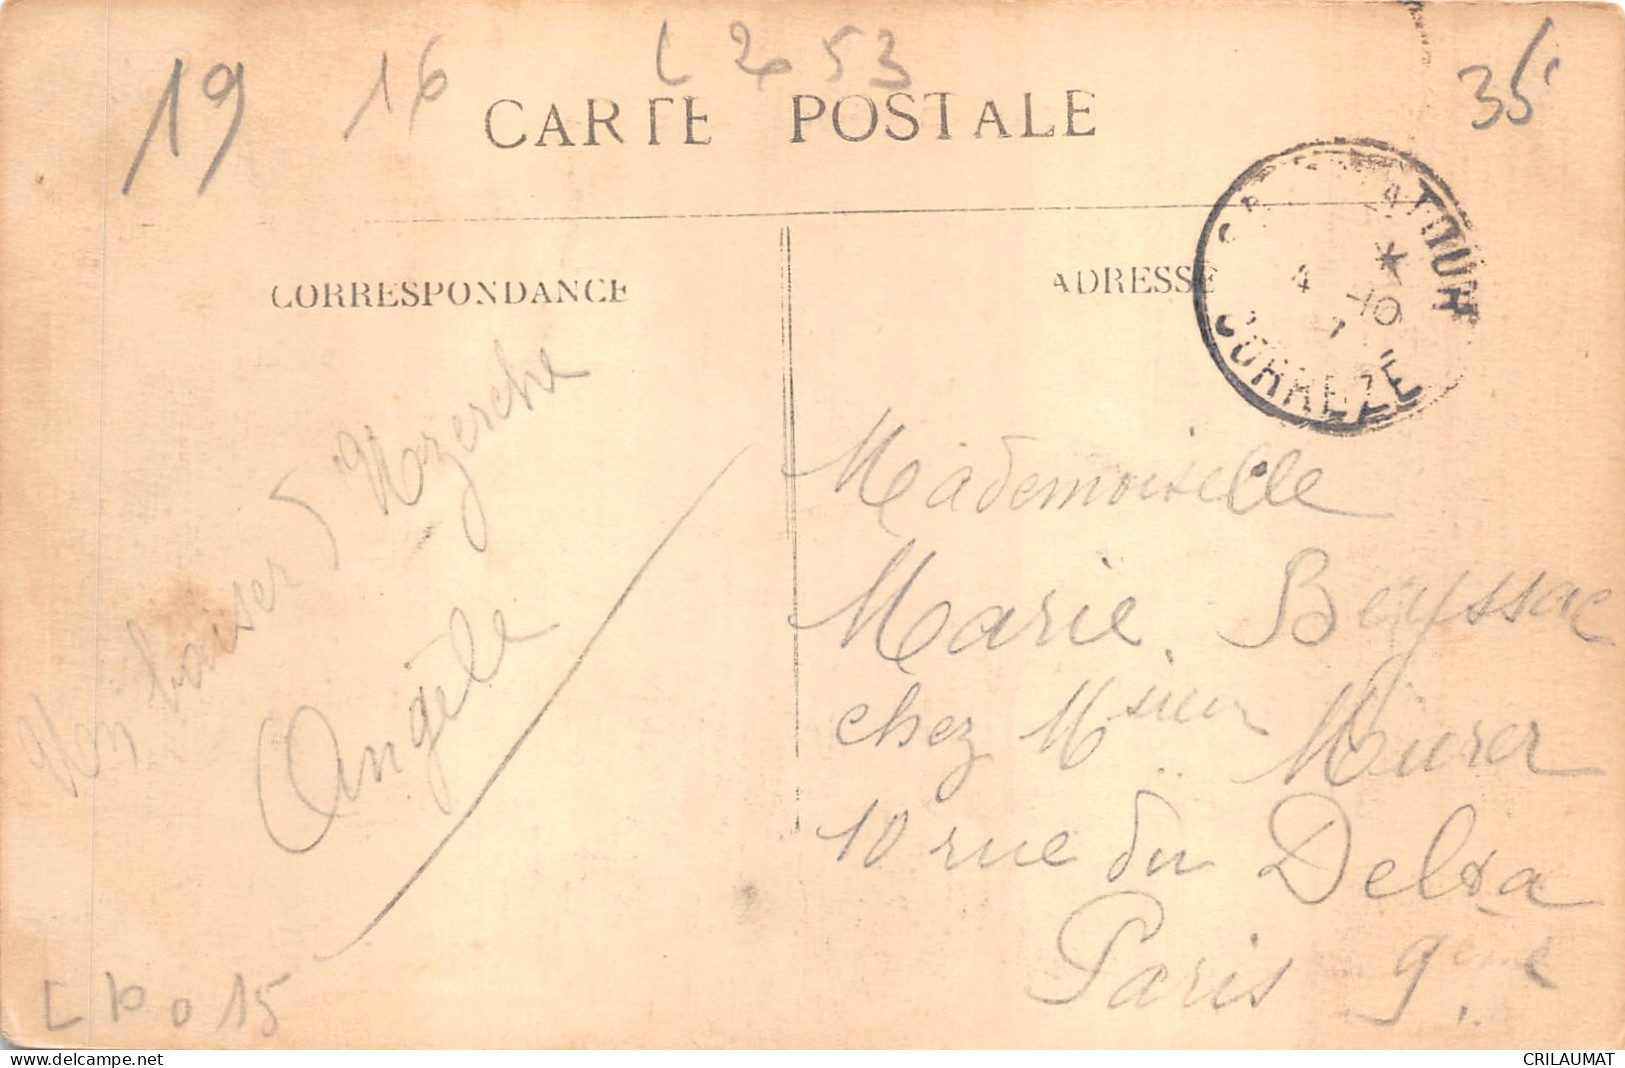 19
16
L 2 53
35
CARTE POSTALE
CORRESPONDANCE
ADRESSE
CORREZE
4 -10
7
baiser d'Uzerche
Angèle
Mademoiselle
Marie Beyssac
chez Msieur Murer
10 rue du Delta
Paris 9ème
15
www.delcampe.net
CRILAUMAT